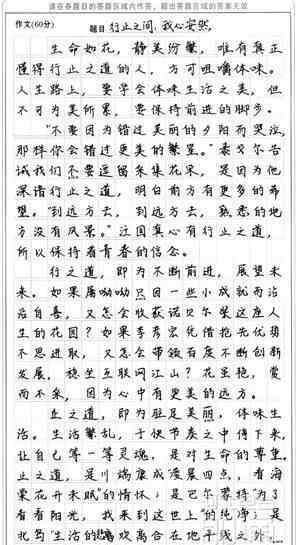 请在各题目的答题区域内作答，超出答题区域的答案无效
作文(60分)
题目 行止之间，我心安然。
生命如花，静美纷繁，唯有真正
懂得行止之道的人，方可咀嚼体味。
人生路上，要学会体味生活之美，但
不可为美所累，要保持前进的脚步。
"不要因为错过美丽的夕阳而哭泣，
那样你会错过更美的繁星。"泰戈尔告
诫我们不要逗留采集花朵，是因为他
深谙行止之道，明白前方有更多的希
望。"到远方去，到远方去，熟悉的地
方没有风景。"汪国真心有行止之道，
所以保持着青春的信念。
行之道，即为不断前进，展望未
来。如果屠呦呦只因一些小成就而沾
沾自喜，又怎会收获诺贝尔奖这座人
生的花园？如果李彦宏凭借抱先优势
不思进取，又怎会带领百度不断创新
发展，稳坐互联网江山？花虽艳，赏
而不采，因为心中有更美的远方。
止之道，即为驻足美丽，体味生
活。生活繁乱，于快节奏之中停下来，
让自己等一等灵魂，是对生命的尊重。
止之道，是川端康成凌晨四点，看海
棠花开未眠"的情怀；是巴尔蒙特"为了
看看阳光，我来到这世上"的纯净；是
北岛"生活的 欢离合在地平线之外，